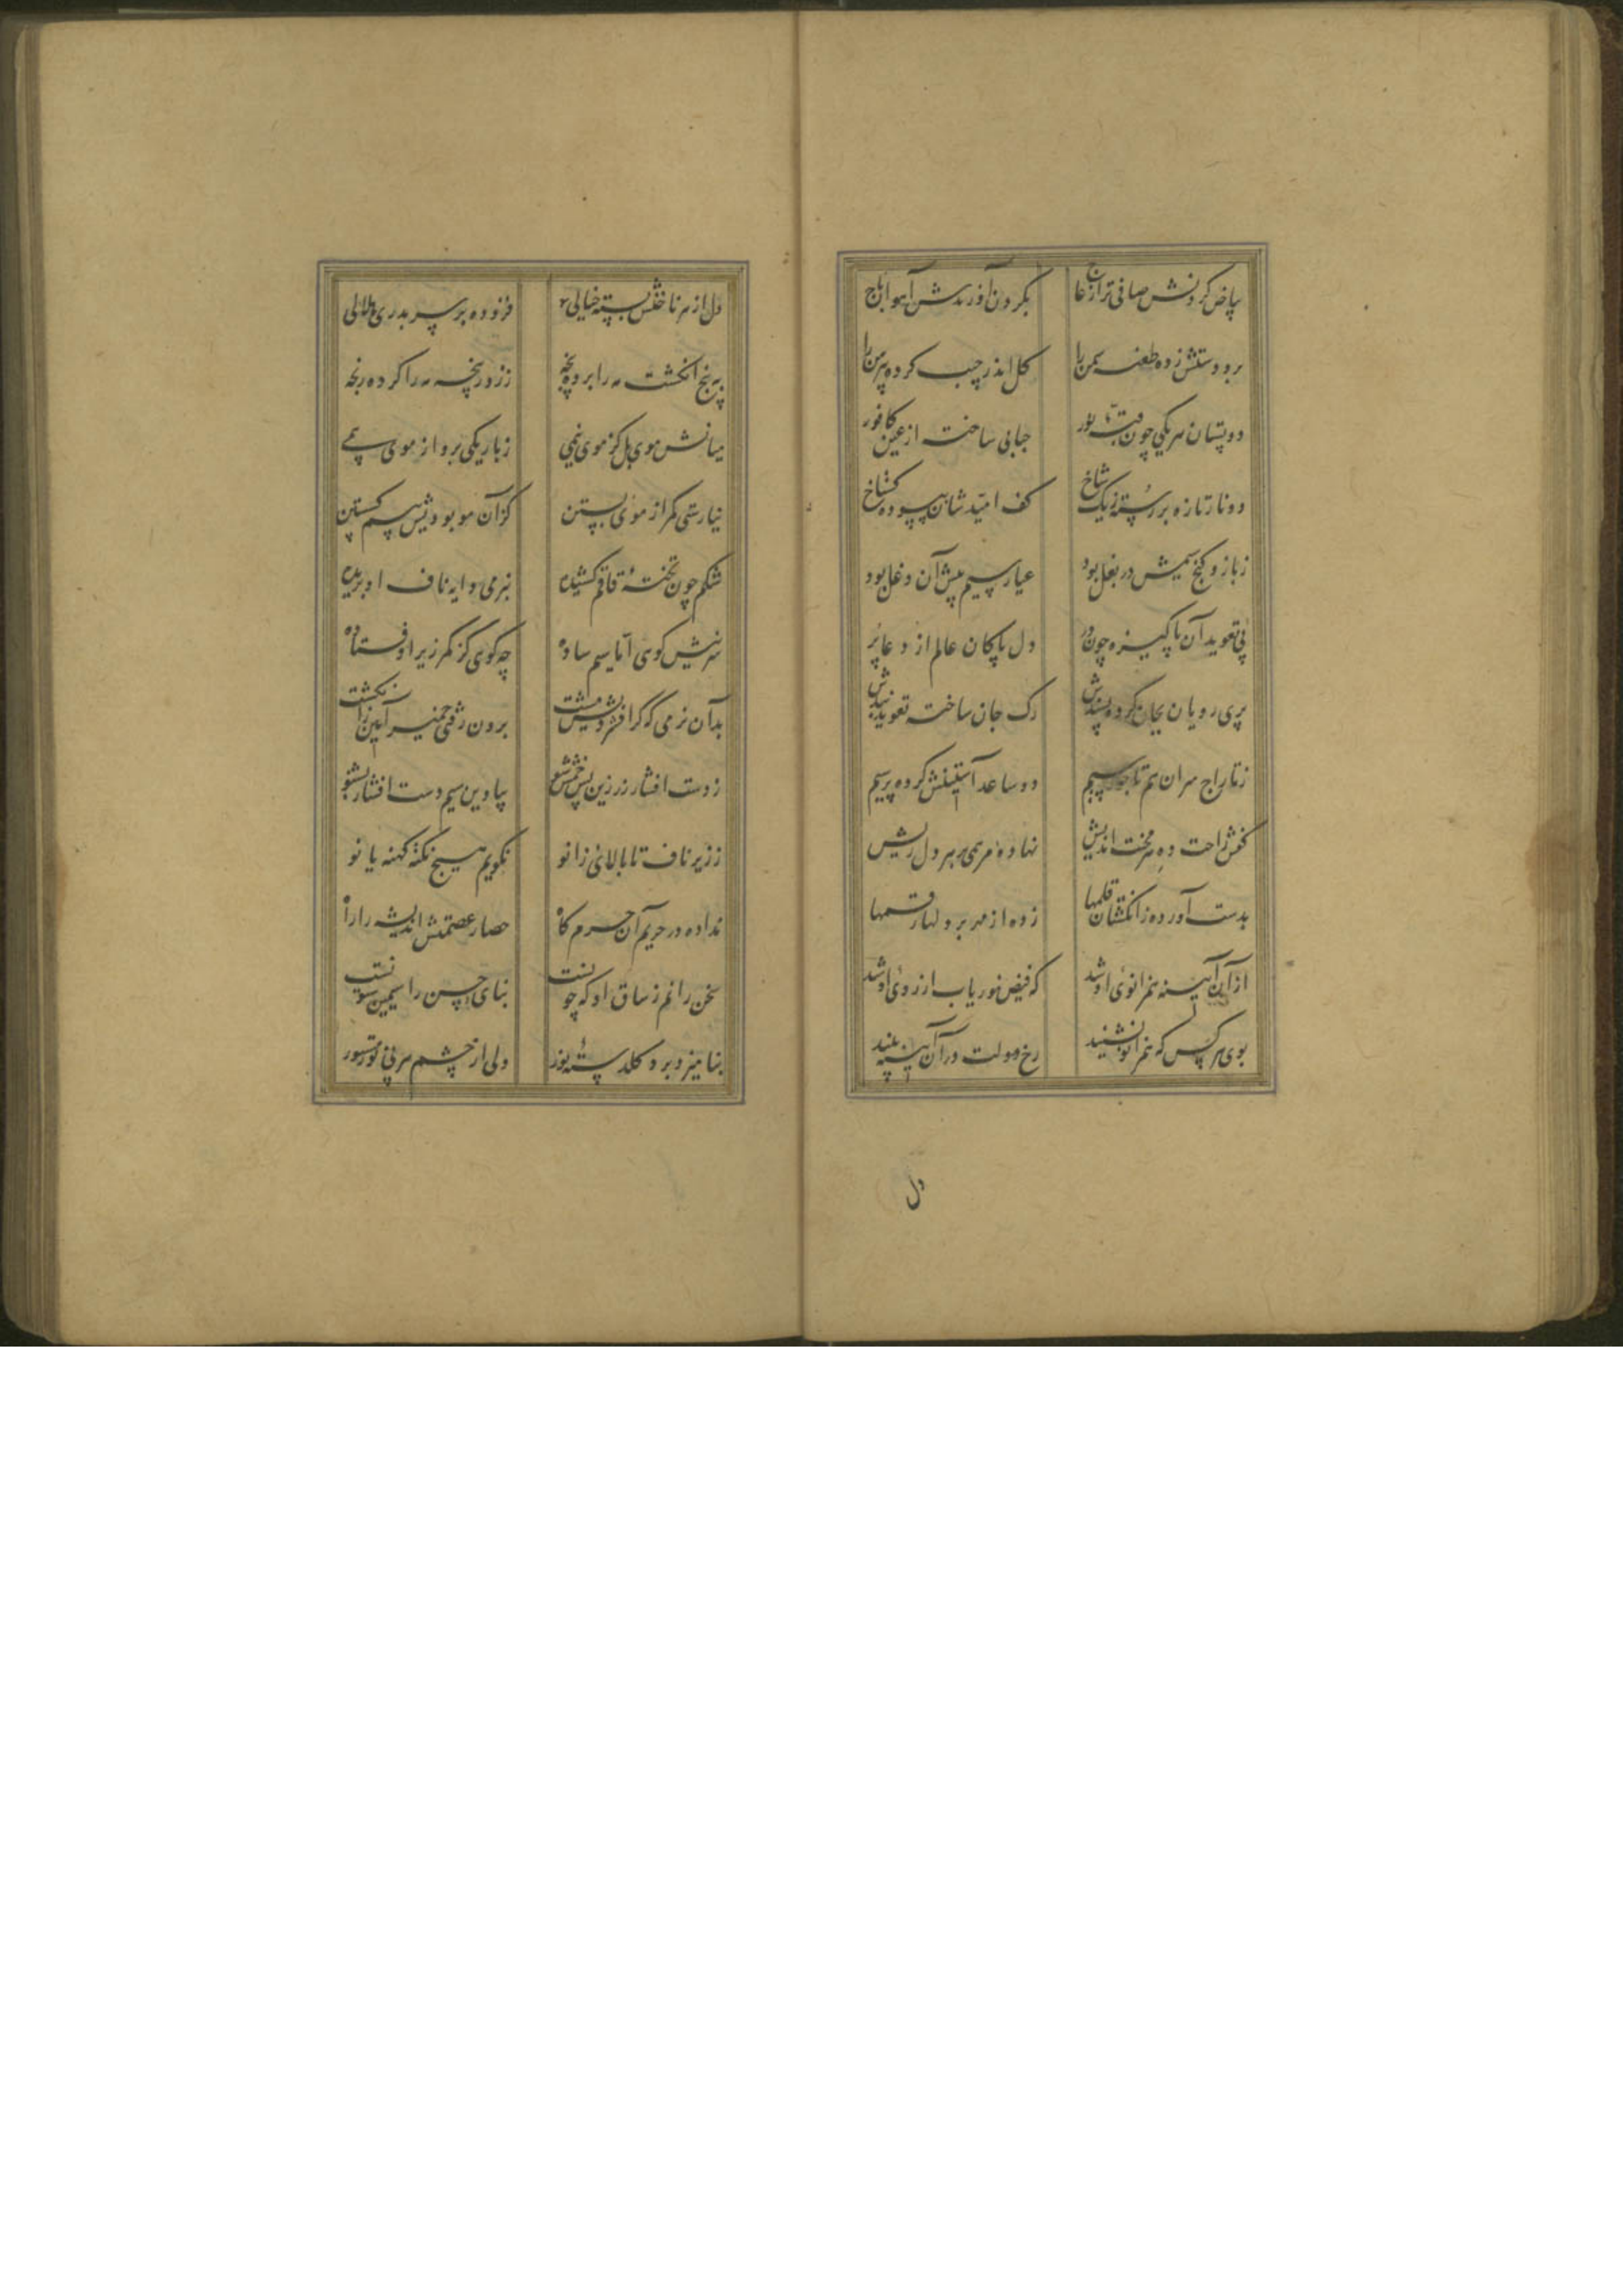 بیاض گردنش صافی تر از عاج بگردن آوردندش آهوان باج
بر و دوشش زده طعنه سمن را گل اندر جیب کرده پیرهن را
دو پستان هر یکی چون قبه نور حبابی ساخته از عین کافور
دو نار تازه بر رسته ز یک شاخ کف امید شان بپسوده گستاخ
ز بازو گنج سیمش در بغل بود عیار سیم پیش آن دغل بود
پی تعوید آن پاکیزه چون در دل پاکان عالم از دعا پر
پری رویان بجان کرده پسندش رگ جان ساخته تعوید بندش
ز تاراج سران هم تاجور سیم دو ساعد آستینش کرده پر سیم
کفش راحت ده هر محنت اندیش نهاده مرهمی بهر دل ریش
بدست آورده ز انگشتان قلمها زده از مهر بر دلها رقمها
از آن آیینه همزانوی او شد که فیض نور یاب از روی او شد
بوی هر کس که همزانو نشیند رخ دولت در آن آیینه بیند
دل
دل از هر ناخنش بسته خیالی فزوده بر سر بدری هلالی
به پنج انگشت مه را برده پنجه ز زور پنجه مه را کرده رنجه
میانش موی بل کز موی نیمی ز باریکی برو از موی بیمی
نیارستی کمر از موی بستن کز آن مو بودیش بیم گسستن
شکم چون تخته قاقم کشیده بنرمی دایه ناف او بریده
سرینش کوهی اما سیم ساده چه کوهی کز کمر زیر اوفتاده
بدان نرمی که گر افشردیش مشت برون رفتی خمیر آیین ز انگشت
ز دست افشار زرین پس خمش شو بیا وین سیم دست افشار بشنو
ز زیر ناف تا بالای زانو نگویم هیچ نکته کهنه یا نو
نداده در حریم آن حرم گاه حصار عصمتش اندیشه را راه
سخن رانم ز ساق او که چونست بنای حسن را سیمین ستونست
بنامیزد بود گلدسته نور ولی از چشم هر بی نور مستور